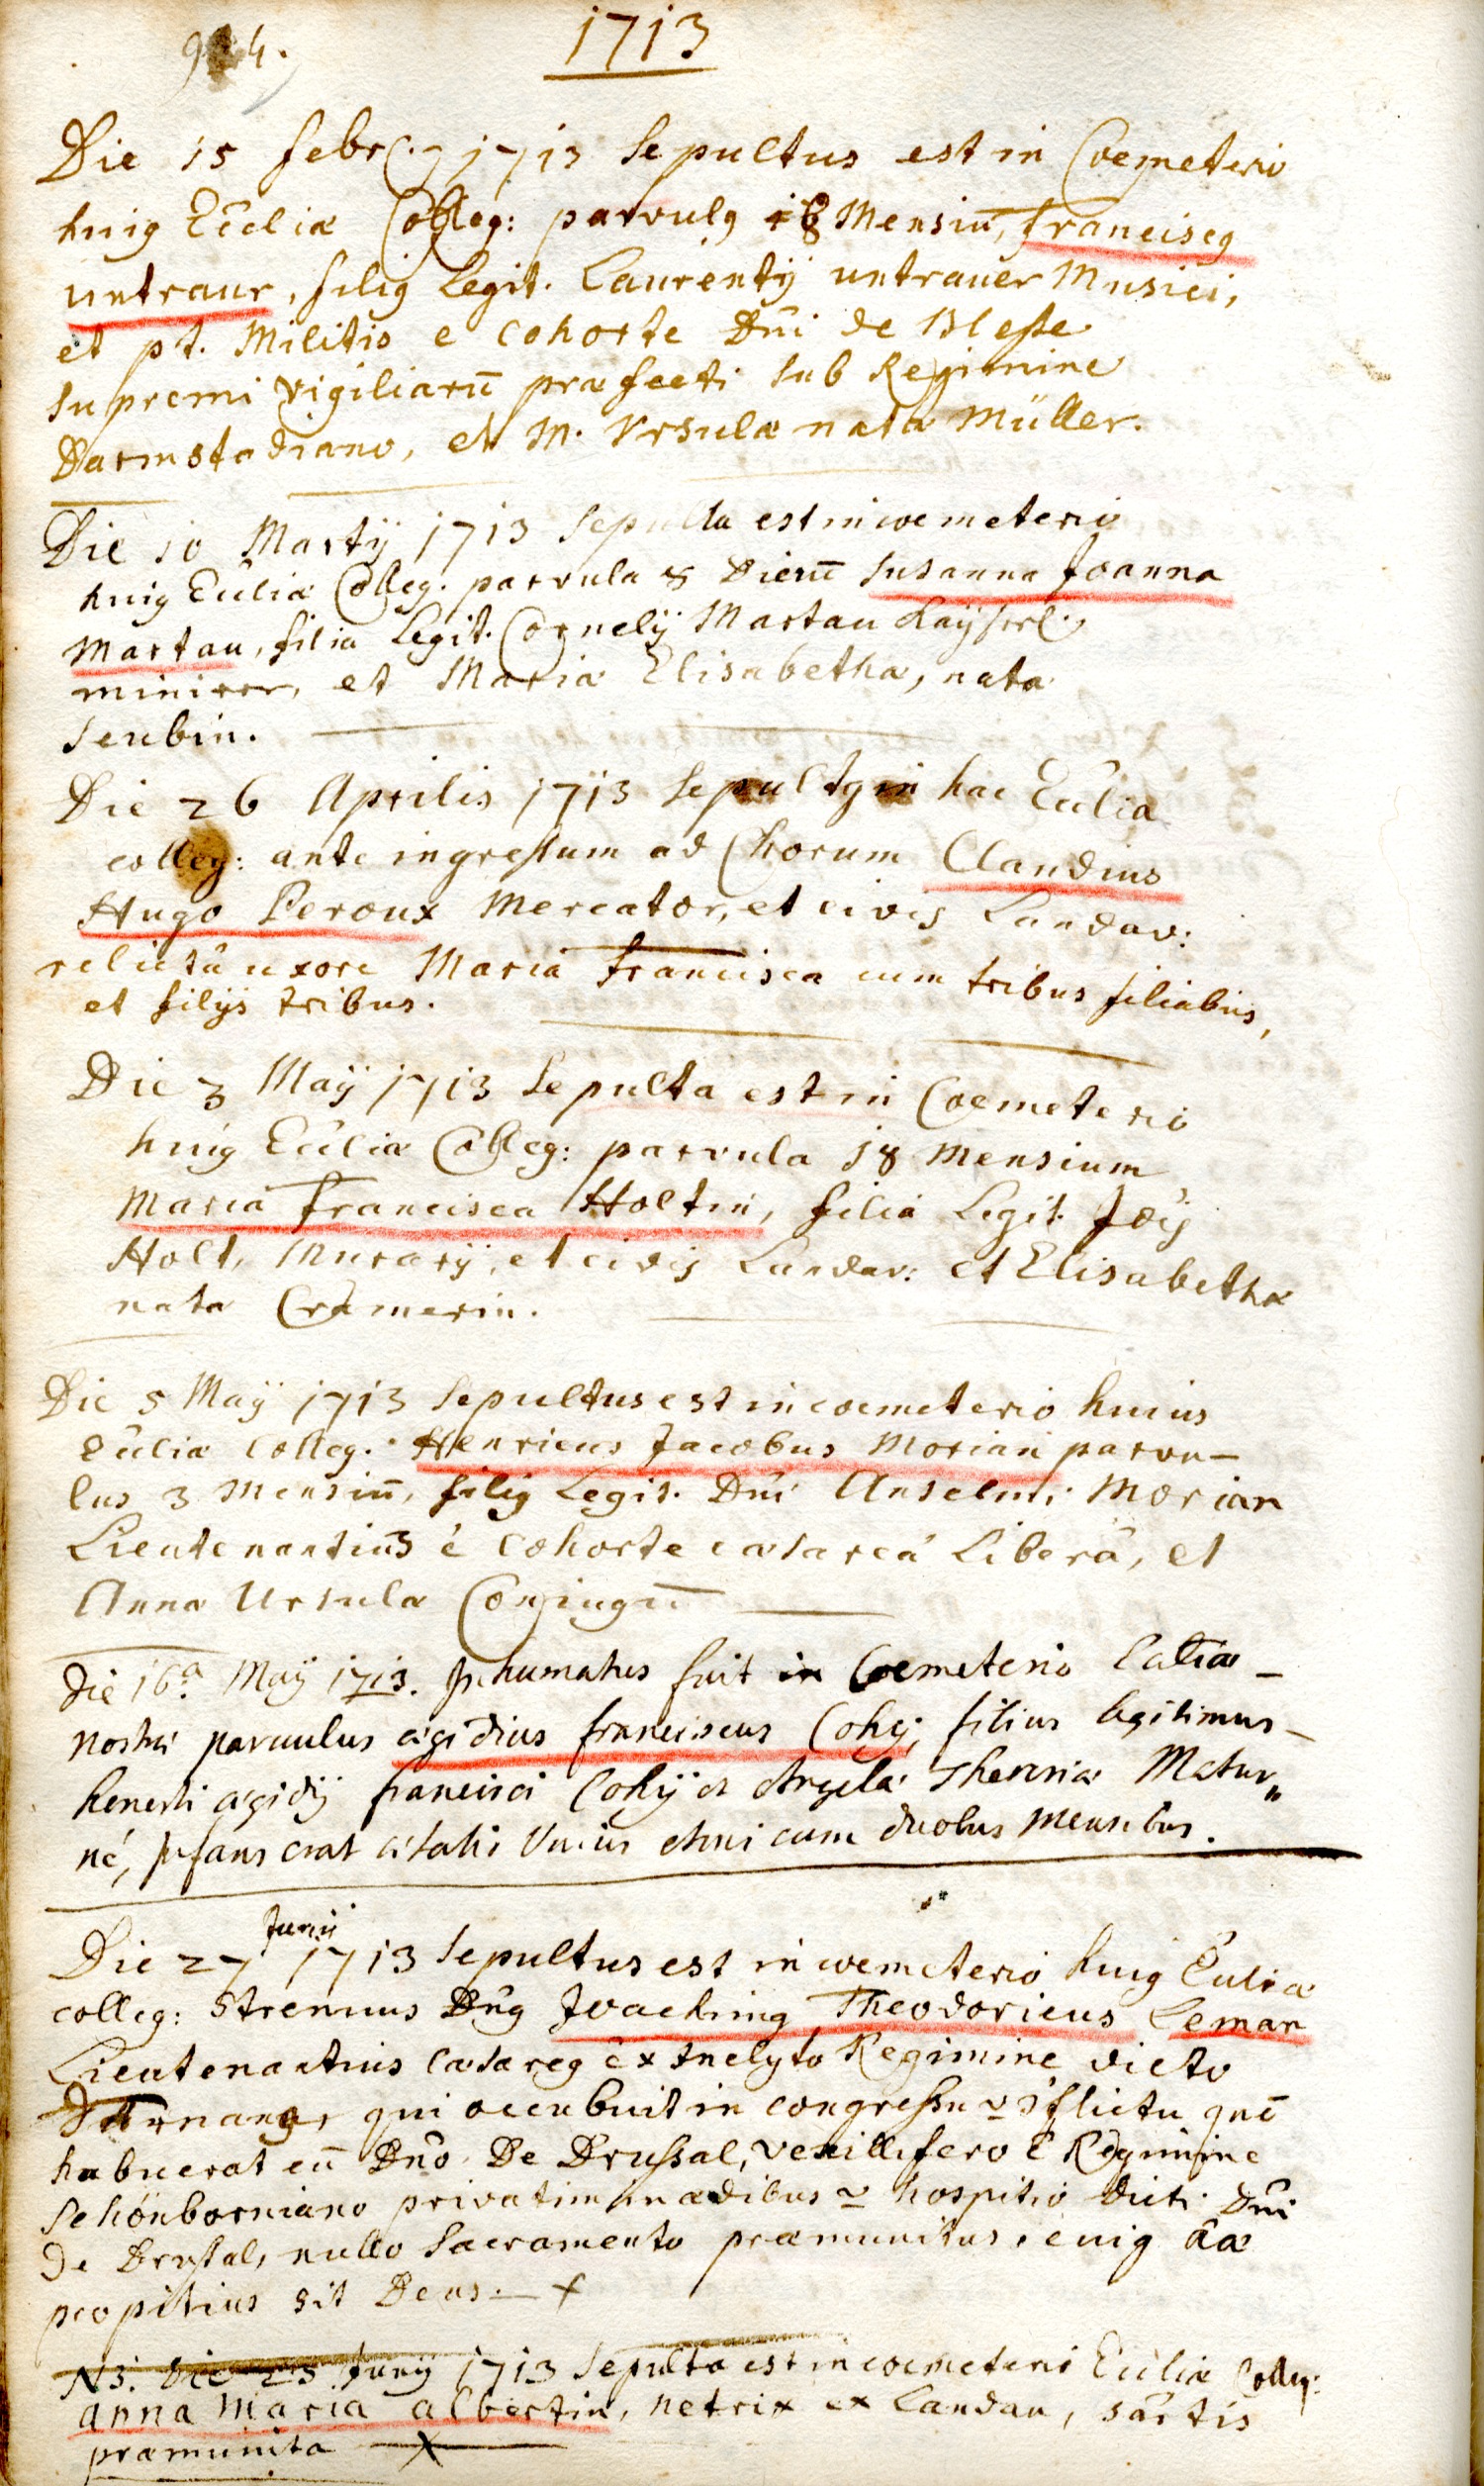 1713
Die 15 febr. 1713 Sepultus est in Coemeterio
huig Ecclīæ Colleg: parvulg 18 Mensiū, franciscg
untraur, filig Legit. Laurentÿ untrauer Musici,
et pt. Militis e cohorte Dn̄i de Blesse
supremi vigiliarū præfecti sub Regimine
Darmstadiano, et M. Vrsulæ nata Müller.
Die 10 Martÿ 1713 Sepulta est in coemeterio
huig Ecc̄liæ Colleg. parvula 8 Dierū Susanna Joanna
Martau, filia Legit. Cornelÿ Martau Kaÿserl.
minirer, et Mariæ Elisabetha, nata
Scubin.
Die 26 Aprilis 1713 Sepultg in hac Ecc̄lia
colleg: ante ingressum ad Chorum Claudius
Hugo Peroux Mercator, et civis Landav:
relictâ uxore Mariâ francisca cum tribus filiabus,
et filÿs tribus.
Die 3 Maÿ 1713 Sepulta est in Coemeterio
huig Ecc̄liæ Colleg: parvula 18 Mensium
Maria francisca Holtin, filia Legit. Joīs
Holt, Murarÿ, et civis Landav: et Elisabethæ
nata Cramerin.
Die 5 Maÿ 1713 Sepultus est in coemeterio huius
Ecc̄liæ Colleg. Henricus Jacobus Morian parvu-
lus 3 Mensiū, filig Legit. Dn̄i Anselmi Morian
Lieutenantius é cohorte cæsareâ Liberâ, et
Anna Ursulæ Conjugū
Die 16ª Maÿ 1713. Inhumatus fuit in Coemeterio
nostri parvulus ægidius franciscus Cohÿ, filius legitimus
honesti ægidÿ francisci Cohÿ et Angela Theresiæ Matur„
né, Infans erat ætatis Unius Anni cum duobus Mensibus.
Junÿ
Die 27 1713 Sepultus est in coemeterio huig Ecc̄liæ
colleg: Strenuus Dn̄g Joachimg Theodoricus Leman
Lieutenantius Cæsareg ex Inclyto Regimine dicto
qui occubuit in congressu conflictu quē
habuerat cū Dn̄o De Drussal, vexillifero é Regimine
Schönborniano privatim in ædibus hospitio dicti Dn̄i
De Drussal, nullo Sacramento præmunitus, cuig
propitius sit Deus.
NB. Die 25 Junÿ 1713 Sepulta est in coemeterio Ecc̄liæ Colleg:
anna Maria albertin, netrix ex Landau, s̄ac̄tis
præmunita